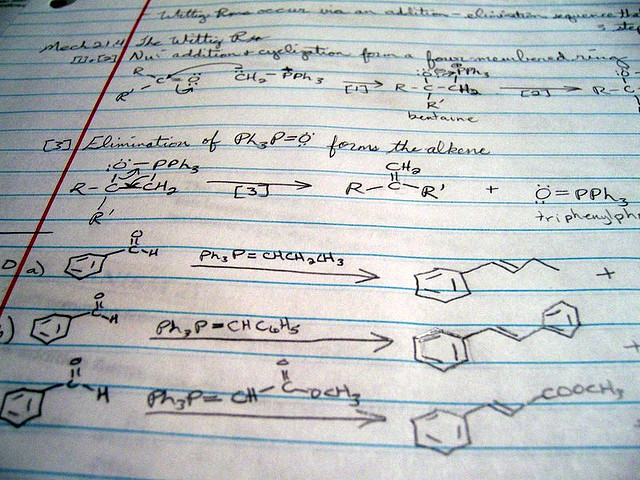 Wittig Rxns occur via an addition-elimination sequence
3 step
Mech 21.4 The Wittig Rxn
[1], [2] Nu: addition + cyclization form a four-membered ring
R R' C=O: CH2-PPh3 [1] R-C-CH2 :O: PPh3 R' [2] R-C
betaine
[3] Elimination of Ph3P=O forms the alkene
:O-PPh3 R-C-CH2 R' [3] CH2 R-C-R' + O=PPh3
a) O C-H Ph3P=CHCH2CH3 +
) O C H Ph3P=CHC6H5 +
O C H Ph3P=CH O C OCH3 COOCH3